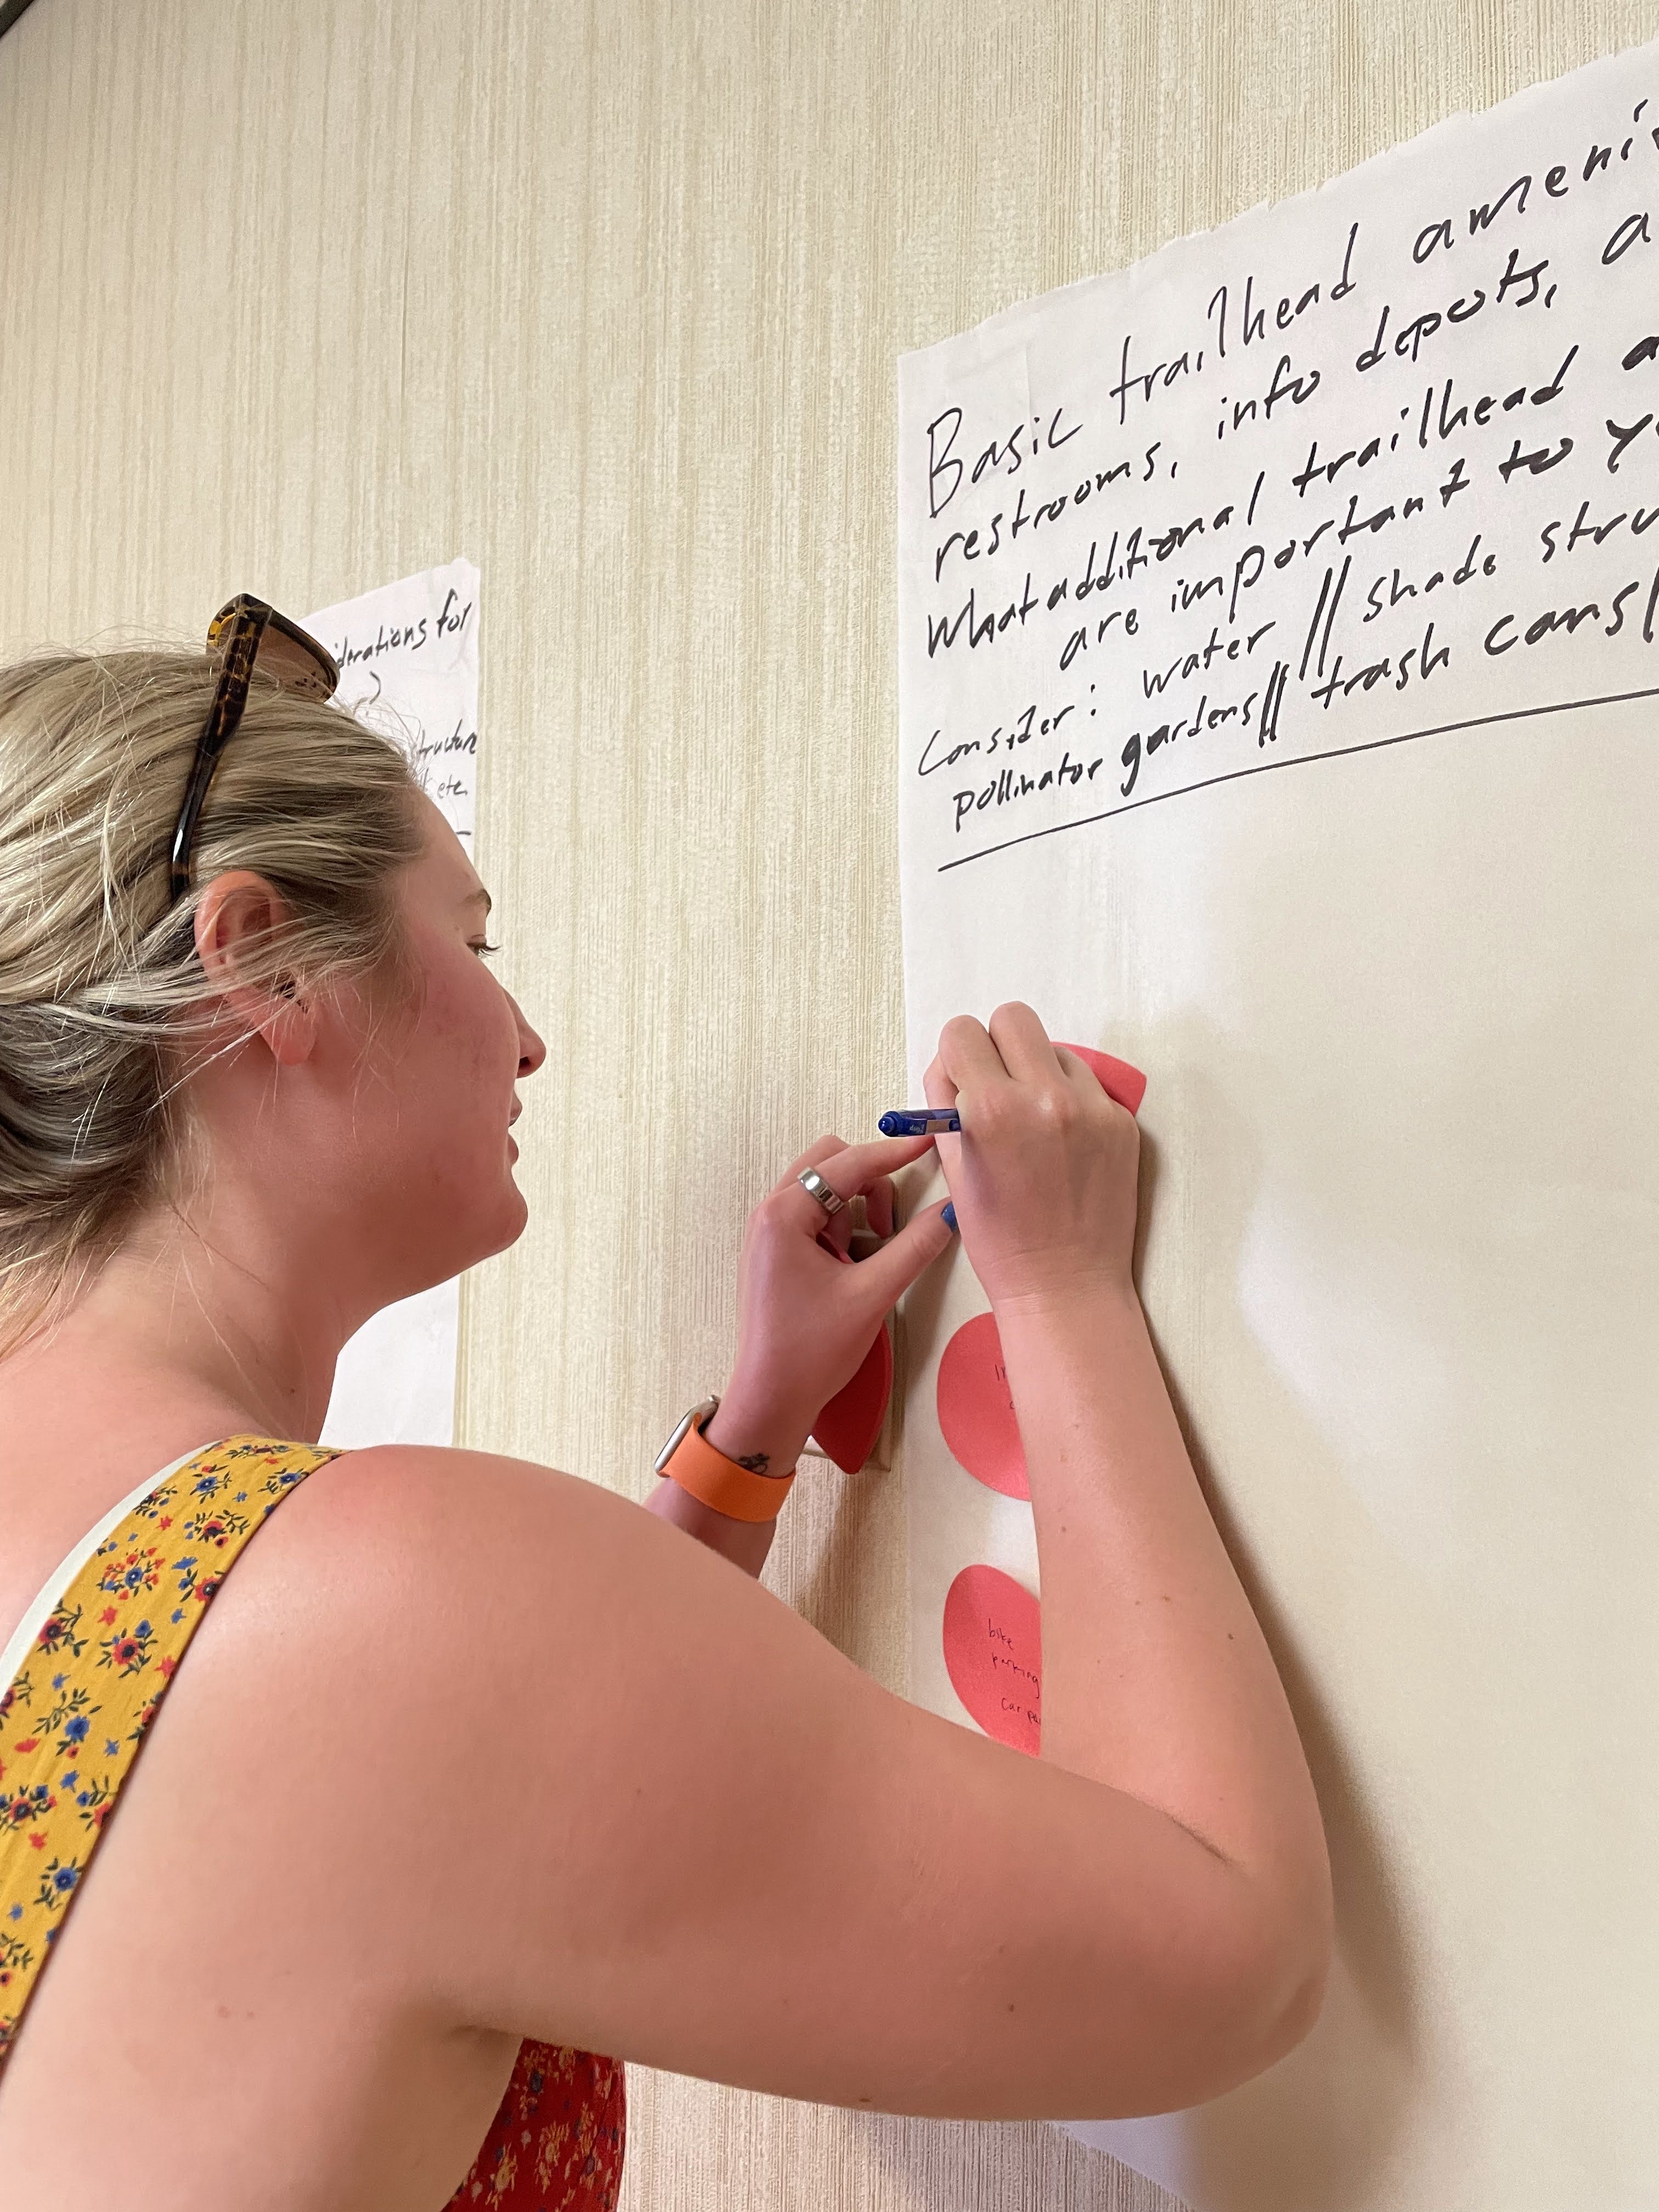 derations for
?
structure
etc.
Basic trailhead ameni
restrooms, info depots, a
What additional trailhead a
are important to yo
Consider: water || shade stru
pollinator gardens || trash cans |
bike
parking
car